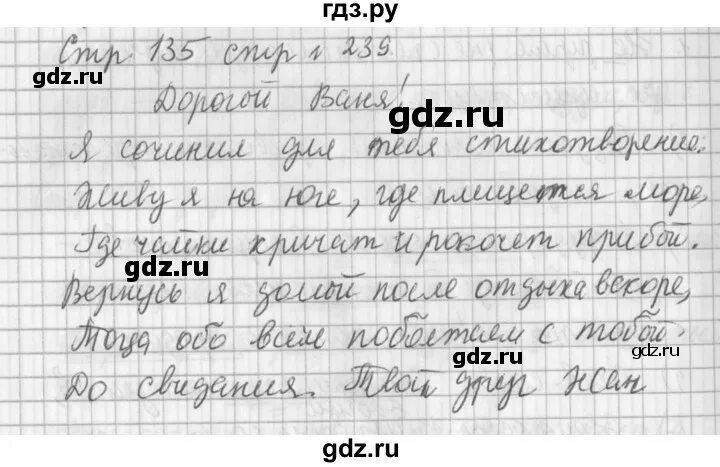 гдз.ру
Стр. 135 стр № 239
gdz.ru
Дорогой Ваня!
gdz.ru
Я сочинил для тебя стихотворение.
Живу я на юге, где плищется море,
Где чайки кричат и рокочет прибой.
gdz.ru
Вернусь я домой после отдыха вскоре,
Тогда обо всём поболтаем с тобой.
gdz.ru
gdz.ru
До свидания. Твой друг Жан
gdz.ru